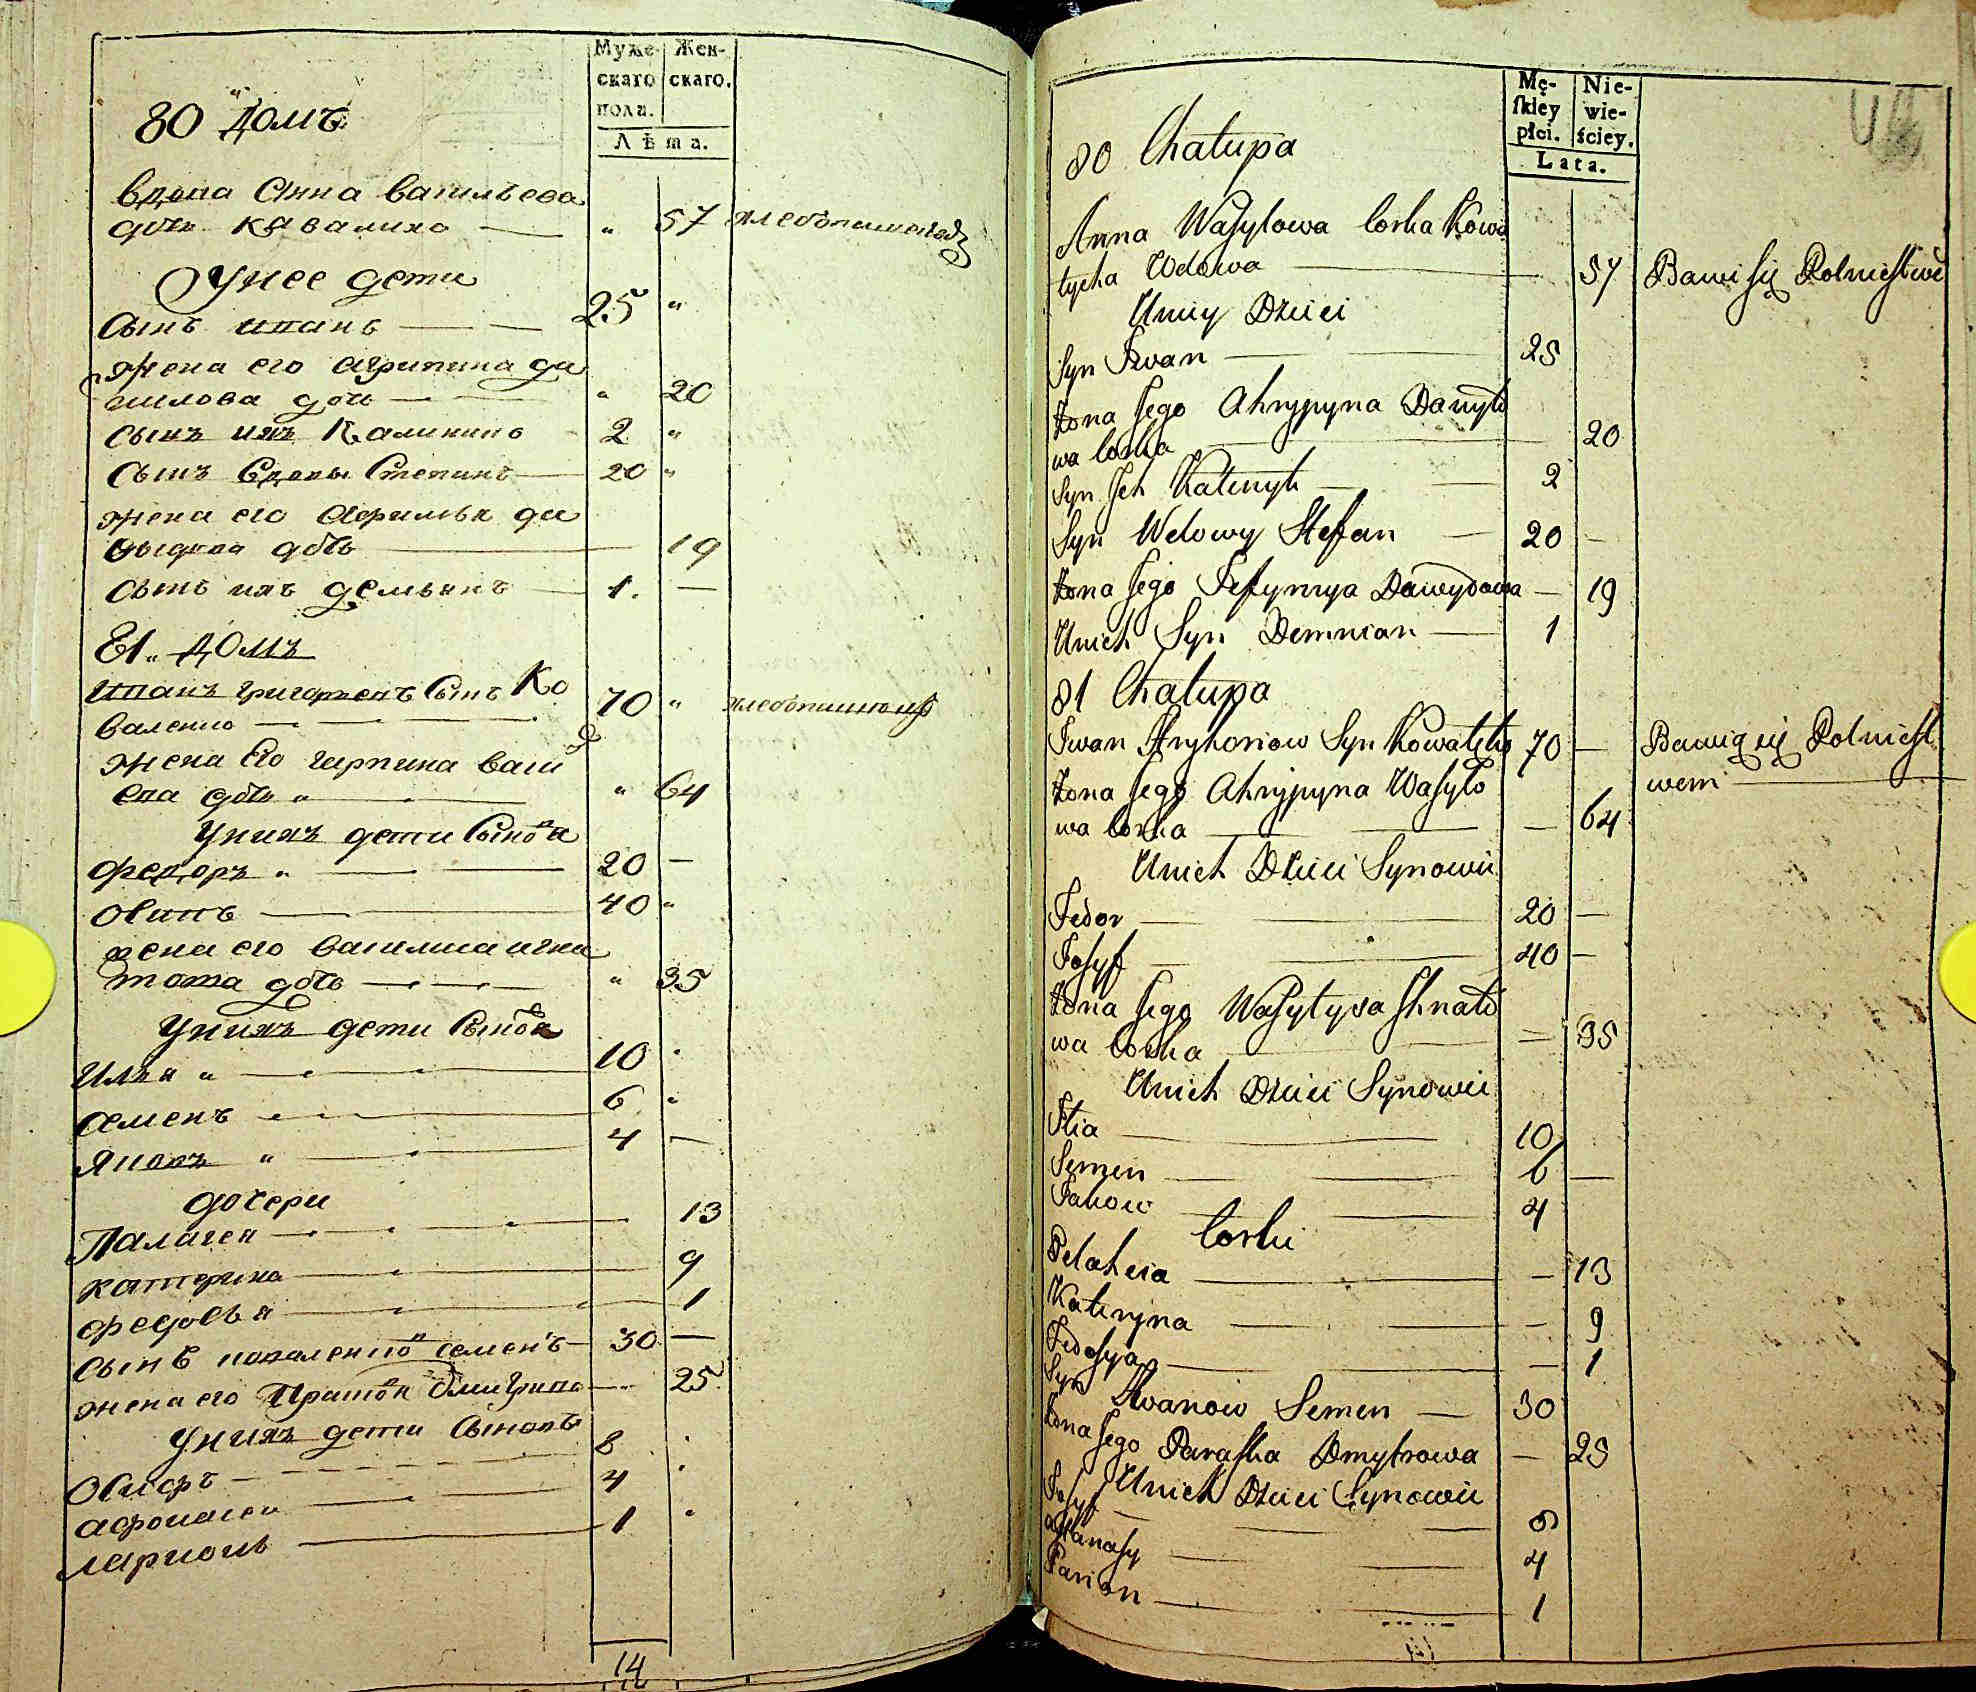 Муже-
скаго
пола.
Жен-
скаго.
Лѣта.
80 домъ
вдова Анна васильева
дочь Кавалиха — " 57
Унее дети
Сынъ иванъ — 25 "
жена его агрипина да
нилова дочь — " 20
Сынъ ихъ Калиникъ 2 "
Сынъ Вдовы Степанъ — 20 "
жена его
выдова дочь — 19
Сынъ ихъ демьянъ — 1. —
81. домъ
иванъ григориевъ Сынъ Ко
валенко — 70 "
жена Его гарпина васи
ева дочь " — " 64
Унихъ дети Сынова
Федоръ " — 20 —
Осипъ — 40 "
жена его василиса игна
това дочь — " 35
Унихъ дети Сынова
Илья " — 10
Семенъ — 6 "
Яковъ " — 4 —
дочери
Палагея — 13
катерина — 9
федосья — 1
Сынъ коваленко семенъ — 30 —
жена его Прасковя дмитрова — 25
Унихъ дети Сыновъ
Осипъ — 8
афонасеи — 4
ларионъ — 1
14
Mę-
skiey
płci.
Nie-
wie-
ściey.
Lata.
80 Chałupa
Anna Wasylowa Corka Kowa
lycha Wdowa — 57 Bawi się Rolnictwe
Uniey Dzieci
Syn Iwan — 25
Żona Jego Ahrypyna Danyło
wa Corka — 20
Syn Ich Kalenyk — 2
Syn Wdowy Stefan — 20 —
Żona Jego Jefymya Dawydowa — 19
Unich Syn Demnian — 1
81 Chałupa
Iwan Hryhoriow Syn Kowalenko 70 — Bawią się Rolnict
wem
Żona Jego Ahrypyna Wasyło
wa Corka — 64
Unich Dzieci Synowie
Fedor — 20 —
Josyf — 40 —
Żona Jego Wasylysa Ihnato
wa Corka — 35
Unich Dzieci Synowie
Ilia — 10
Semen — 6 —
Jakow — 4
Corki
Pelaheia — 13
Kateryna — 9
Fedosya — 1
Syn Iwanow Semen — 30
Żona Jego Paraska Dmytrowa — 25
Unich Dzieci Synowie
Josyf — 8
Afanasy — 4
Larion — 1